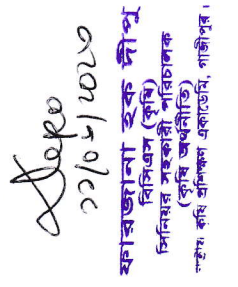 ফারজানা হক দীপু
বিসিএস (কৃষি)
সিনিয়র সহকারী পরিচালক
(কৃষি অর্থনীতি)
কৃষি প্রশিক্ষণ একাডেমি, গাজীপুর।